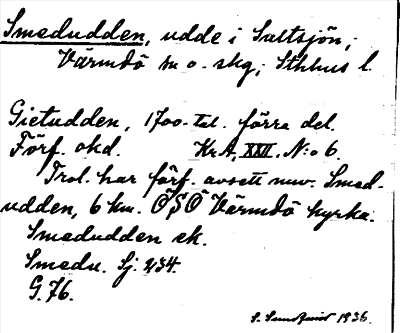 Smedudden, udde i Saltsjön,
Värmdö sn o. skg, Sthlms l.
Gietudden, 1700-tal. förra del.
Förf. okd. KrA, XXII. N:o 6.
Trol. har förf. avsett nuv. Smed-
udden, 6 km. ÖSÖ Värmdö kyrka.
Smedudden ek.
Smedu. Sj. 234.
G. 76.
S. Sundqvist 1936.